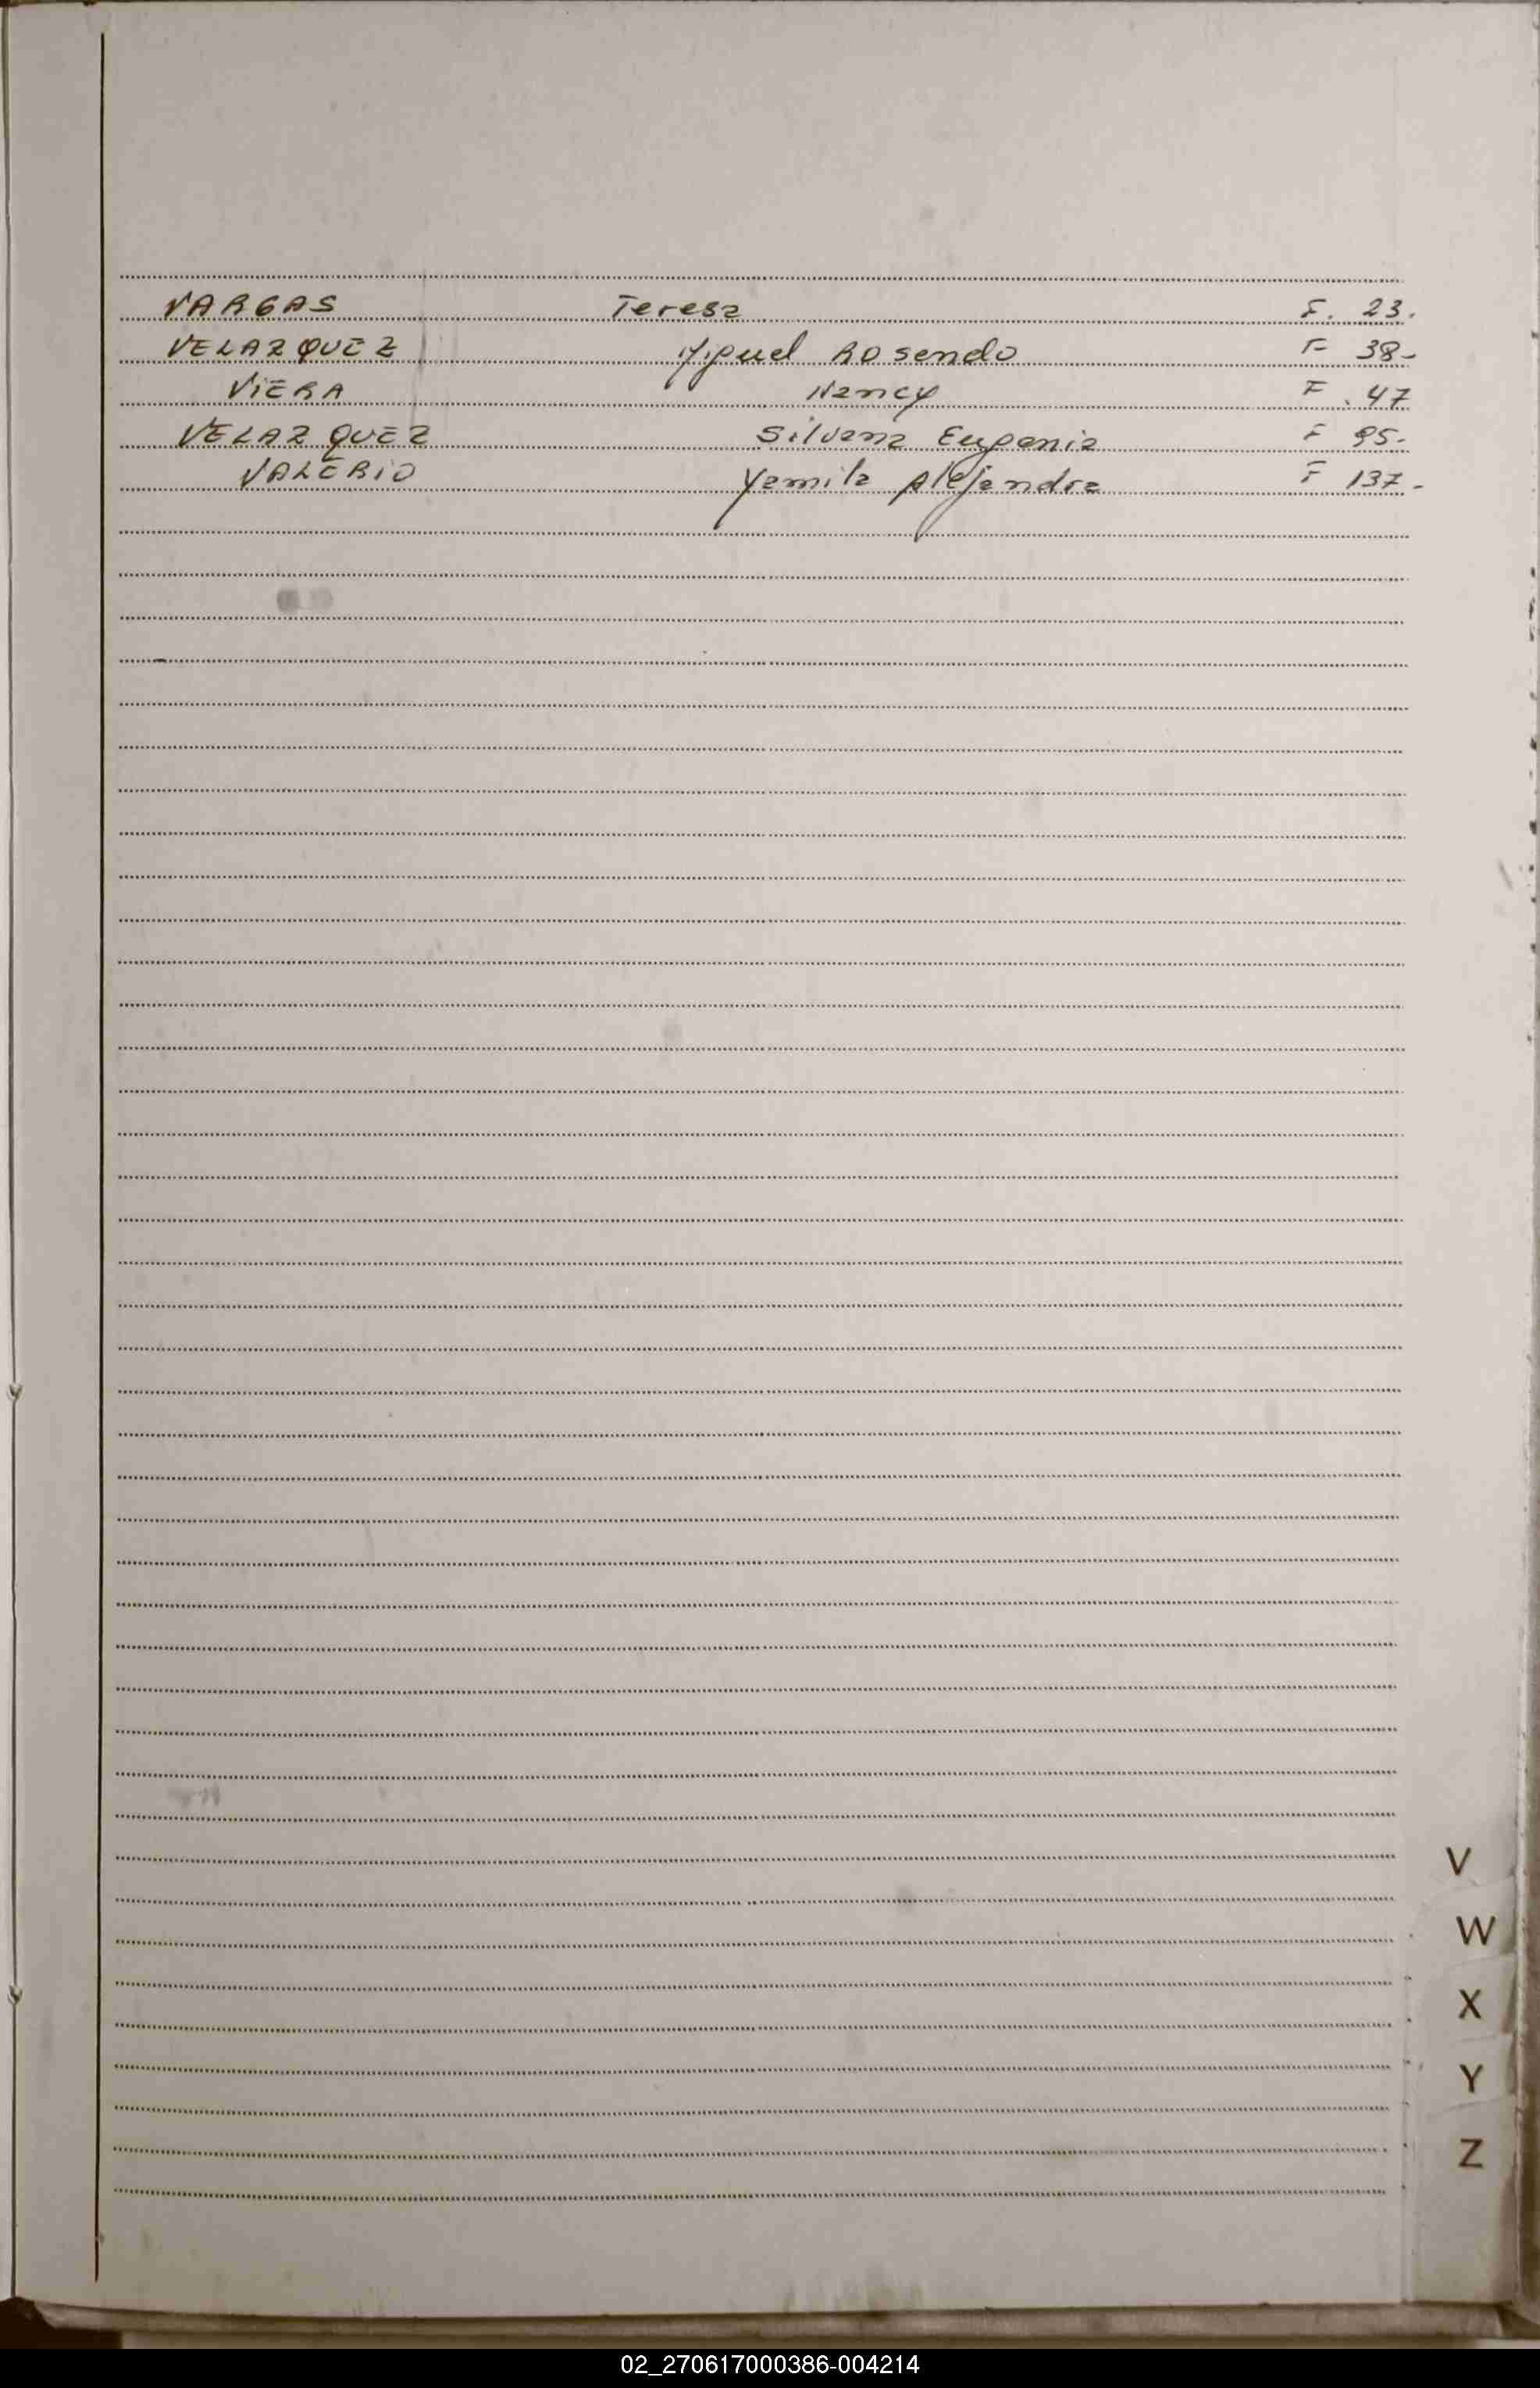 VARGAS Teresa F. 23.
VELAZQUEZ Miguel Rosendo F 38-
VIERA Nancy F. 47
VELAZQUEZ Silvana Eugenia F 95.
VALERIO Yamila Alejandra F 137-
V
W
X
Y
Z
02_270617000386-004214